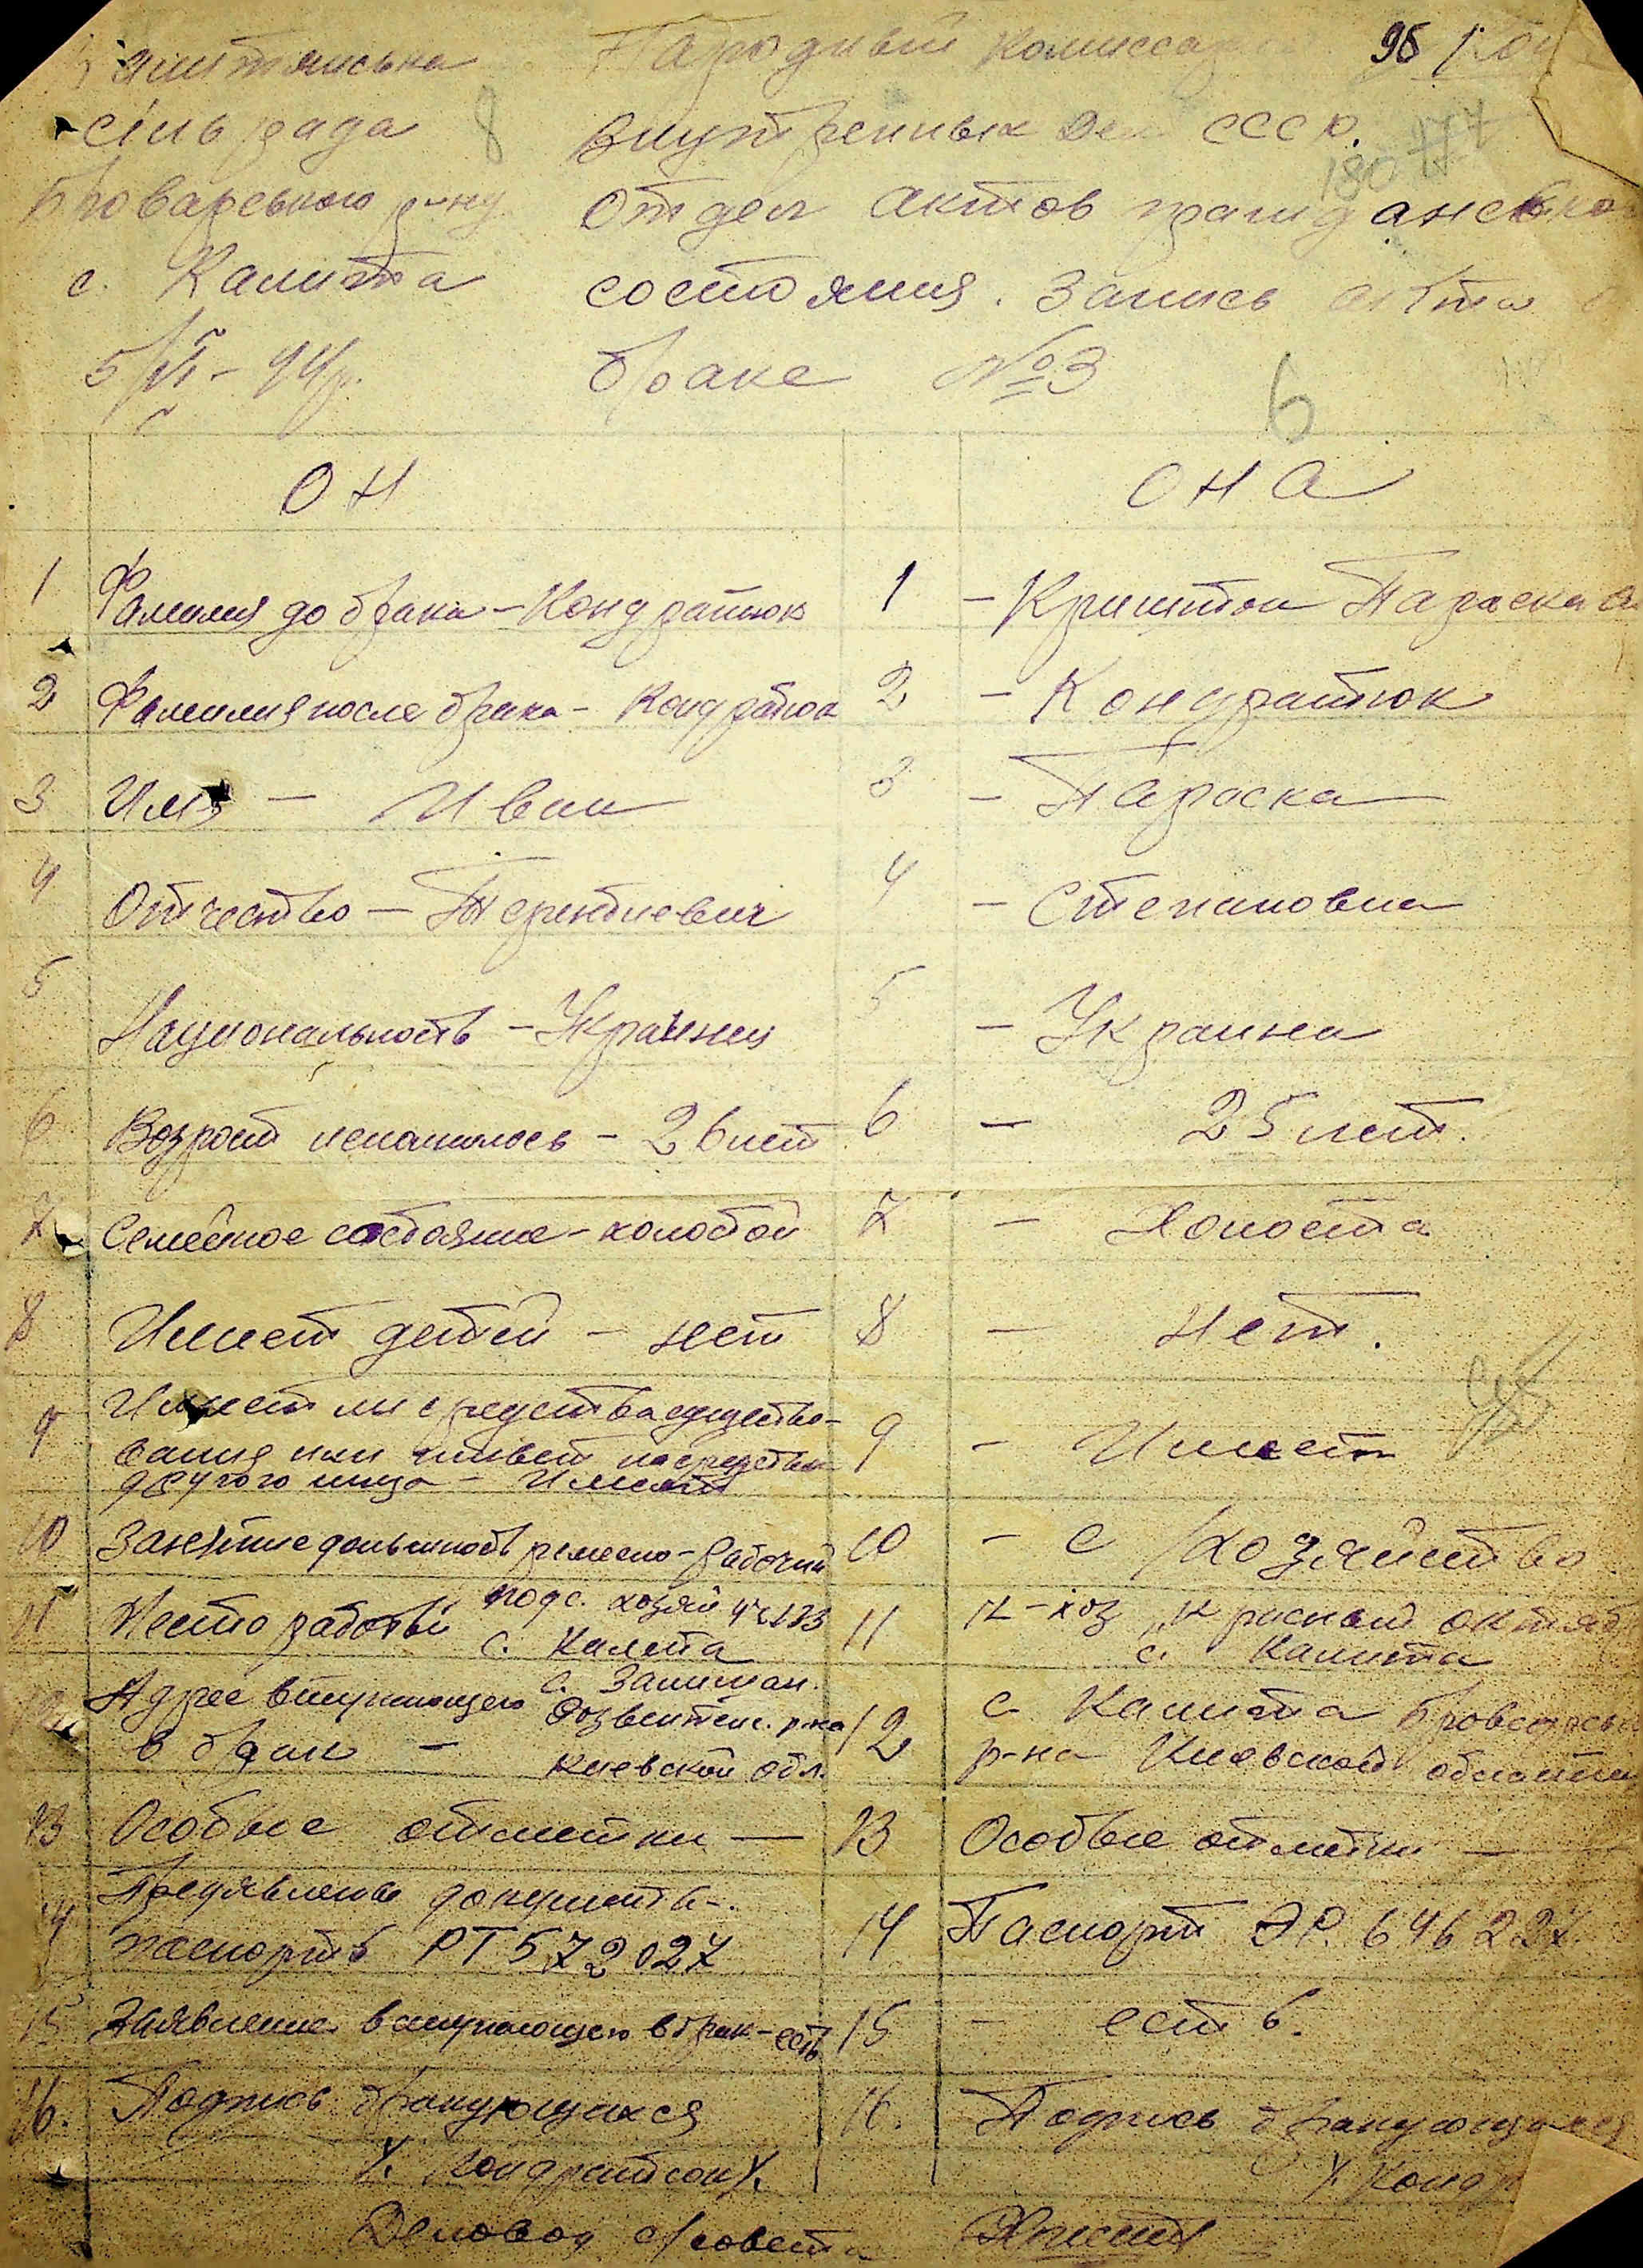 сільрада
Броварського р-ну
с. Калита
5/VI - 44р.
Народный Комиссар
Внутренных Дел СССР.
Отдел актов гражданского
состояния. Запись акта о
браке №3
95
180
177
8
6
ОН
ОНА
1 Фамилия до брака - Кондратюк
1 - Криштоп Параска
2 Фамилия после брака - Кондратюк
2 - Кондратюк
3 Имя - Иван
3 - Параска
4 Отчество - Терентиевич
4 - Степановна
5 Национальность - Украинец
5 - Украинка
6 Возраст исполнилось - 26 лет
6 - 25 лет.
7 Семейное состояние - холостой
7 - Холоста
8 Имеет детей - нет
8 - Нет.
9 Имеет ли средства существо-
вания или живет на средства
другого лица - Имеет
9 - Имеет
10 Занятие должность ремесло - рабочий
10 - с/хозяйство
11 Место работы подс. хозяй
с. Калита
11 к-хоз Красный октябрь
с. Калита
12 Адрес вступающего
в брак -
р-на
Киевской обл.
12 с. Калита Броварского
р-на Киевской области
13 Особые отметки —
13 Особые отметки —
14 Предявлены документы -
паспорт РТ 572027
14 Паспорт ЭР. 646227.
15 Заявление вступающего в брак - есть
15 - есть.
16. Подпись бракующихся
/. Кондратюк/.
16. Подпись бракующихся
/. Конд
Деловод с/совета